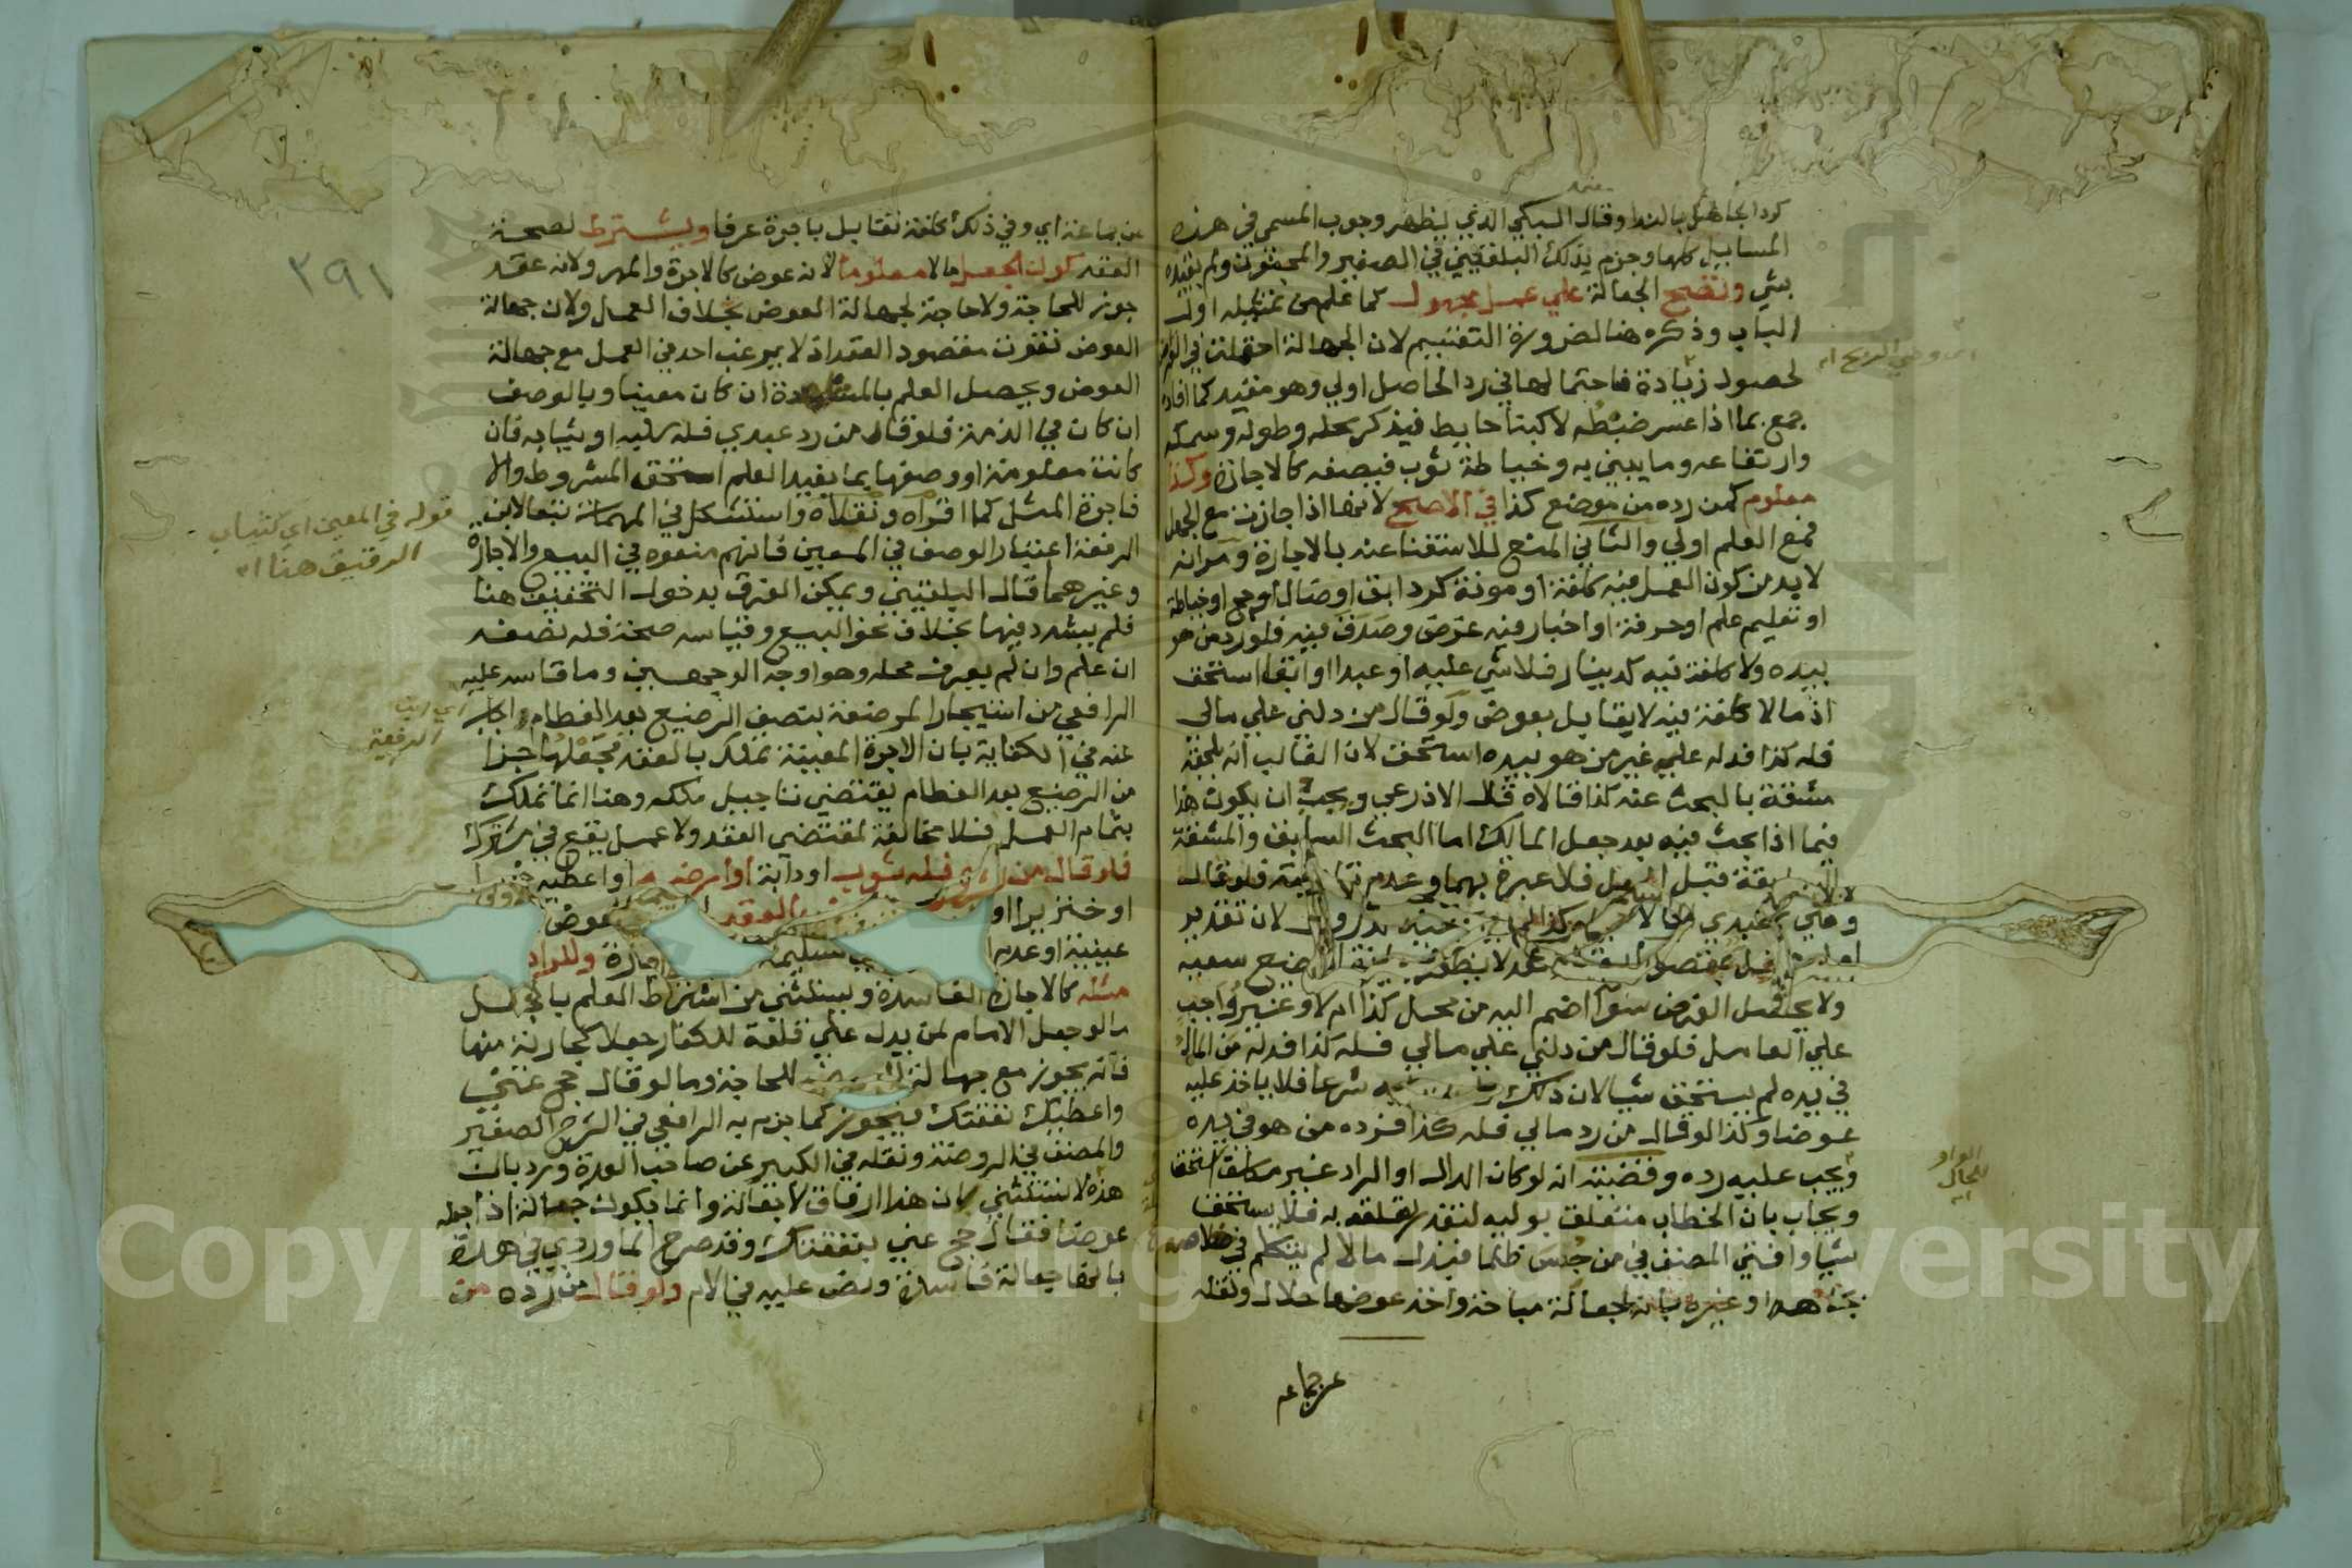 كرد الجاهل بالندا وقال السبكي الذي يظهر وجوب المسمى في هذه
المسايل كلها وجزم بذلك البلقيني في الصغير والمجنون ولم يقيده
بشي وتصح الجعالة علي عمل مجهول كما علم من تمثيله اول
الباب وذكره هنا لضرورة التقسيم لان الجهالة احتملت في القراض
لحصول زيادة فاحتمالها في رد الحاصل اولي وهو مقيد كما افاده
جمع بما اذا عسر ضبطه لا كبنا حايط فيذكر محله وطوله وسمكه
وارتفاعه وما يبني به وخياطة ثوب فيصفه كالاجازة وكذا
معلوم كمن رده من موضع كذا في الاصح لانها اذا جازت مع الجهل
فمع العلم اولي والثاني المنع للاستغنا عنه بالاجارة ومر انه
لا بد من كون العمل فيه كلفة او مونة كرد ابق اوضال او حج او خياطة
او تعليم علم او حرفة او اخبار فيه غرض وصدق فيه فلو رد من هو
بيده ولا كلفة فيه كدينار فلا شي عليه او عبدا او ابقا استحق
اذ ما لا كلفة فيه لا يقابل بعوض ولو قال من دلني علي مالي
فله كذا فدله عليه غير من هو بيده استحق لان الغالب انه يلحقه
مشقة بالبحث عنه كذا قالاه قال الاذرعي ويجب ان يكون هذا
فيما اذا بحث فيه بعد جعل المالك اما البحث السابق والمشقة
السابقة قبل الجعل فلا عبرة بهما وعدم فلو قال
وعلي عبدي لان تقدير
بمقصود العقد
ولا يحصل الغرض سوا اضم اليه من محل كذا ام لا وغير واجب
علي العامل فلو قال من دلني علي مالي فله كذا فدله من المال
في يده لم يستحق شيا لان ذلك شرعا فلا ياخذ عليه
عوضا وكذا لو قال من رد مالي فله كذا فرده من هو في يده
ويجب عليه رده وقضيته انه لو كان الدال او الراد غير مكلف استحقا
ويجاب بان الخطاب متعلق بوليه لتعذر تعلقه به فلا يستحق
شيا وافتي المصنف في من حبس ظلما فبذل مالا لم يتكلم في خلاصه
بجاهه او غيره بانها جعالة مباحة واخذ عوضها حلال ونقله
عن جماعه
اي وهي الربح اه
الواو
للحال
اه
٢٩١
عن جماعة اي وفي ذلك كلفة تقابل باجرة عرفا ويشترط لصحة
العقد كون الجعل مالا معلوما لانه عوض كالاجرة والمهر ولانه عقد
جوز للحاجة ولا حاجة لجهالة العوض بخلاف العمل ولان جهالة
العوض تفوت مقصود العقد اذ لا يرغب احد في العمل مع جهالة
العوض ويحصل العلم بالمشاهدة ان كان معينا وبالوصف
ان كان في الذمة فلو قال من رد عبدي فله سلبه او ثيابه فان
كانت معلومة او وصفها بما يفيد العلم استحق المشروط والا
فاجرة المثل كما اقراه ونقلاه واستشكل في المهمات تبعا لابن
الرفعة اعتبار الوصف في المعين فانهم منعوه في البيع والاجارة
وغيرهما قال البلقيني ويمكن الفرق بدخول التخفيف هنا
فلم يشدد فيها بخلاف نحو البيع وقياسه صحة فله نصفه
ان علم وان لم يعرف محله وهو اوجه الوجهين وما قاسه عليه
الرافعي من استيجار المرضعة بنصف الرضيع بعد الفطام اجاب
عنه في الكفاية بان الاجرة المعينة تملك بالعقد فجعلها جزا
من الرضيع بعد الفطام يقتضي تاجيل ملكه وهنا انما تملك
بتمام العمل فلا مخالفة لمقتضي العقد ولا عمل يقع في مشترك
فلو قال من رده فله ثوب او دابة او ارضه او اعطيه
او خنزيرا او العقد عوض
عينية او عدم تسليمه وللراد
مثله كالاجارة الفاسدة ويستثني من اشتراط العلم بالجعل
ما لو جعل الامام لمن يدل علي قلعة للكفار جعلا كجارية منها
فانه يجوز مع جهالة للحاجة وما لو قال حج عني
واعطيك نفقتك فيجوز كما جزم به الرافعي في الشرح الصغير
والمصنف في الروضة ونقله في الكبير عن صاحب العدة ورد بان
هذه لا تستثني لان هذا ارفاق لا جعالة وانما يكون جعالة اذا جعله
عوضا فقال حج عني بنفقتك وقد صرح الماوردي في هذه
بانها جعالة فاسدة ونص عليه في الام ولو قال من رده من
قوله في المعين اي كثياب
الرقيق هنا اه
اي ابن
الرفعة
Copyright © King Saud University